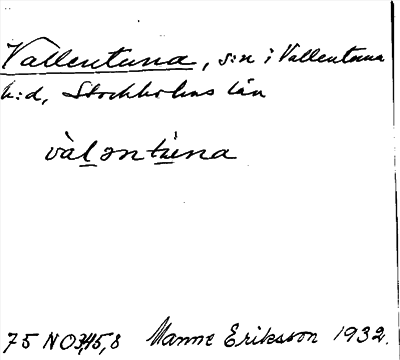 Vallentuna, s:n i Vallentuna
h:d, Stockholms län
vàləntùna
75 NO3,45,8 Manne Eriksson 1932.